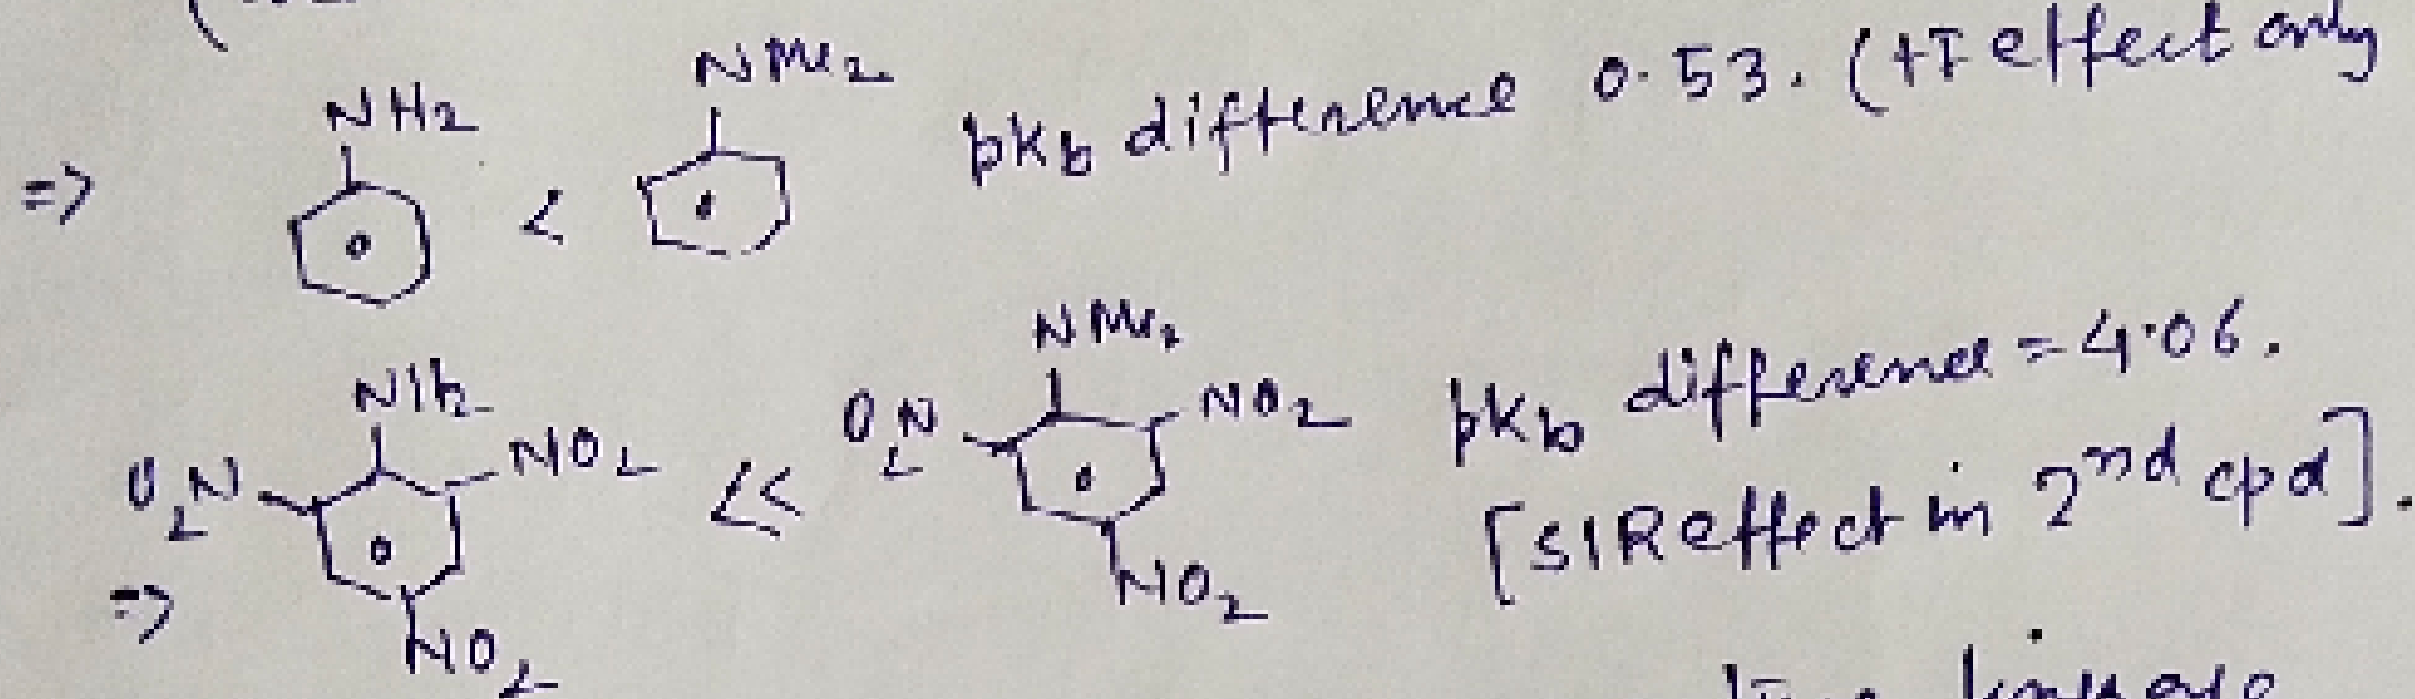 NH2
NMe2
=> < pkb difference 0.53. (+I effect only
NH2
NMe2
O2N NO2 << O2N NO2 pkb difference = 4.06.
=> NO2 NO2 [SIR effect in 2nd cpd].